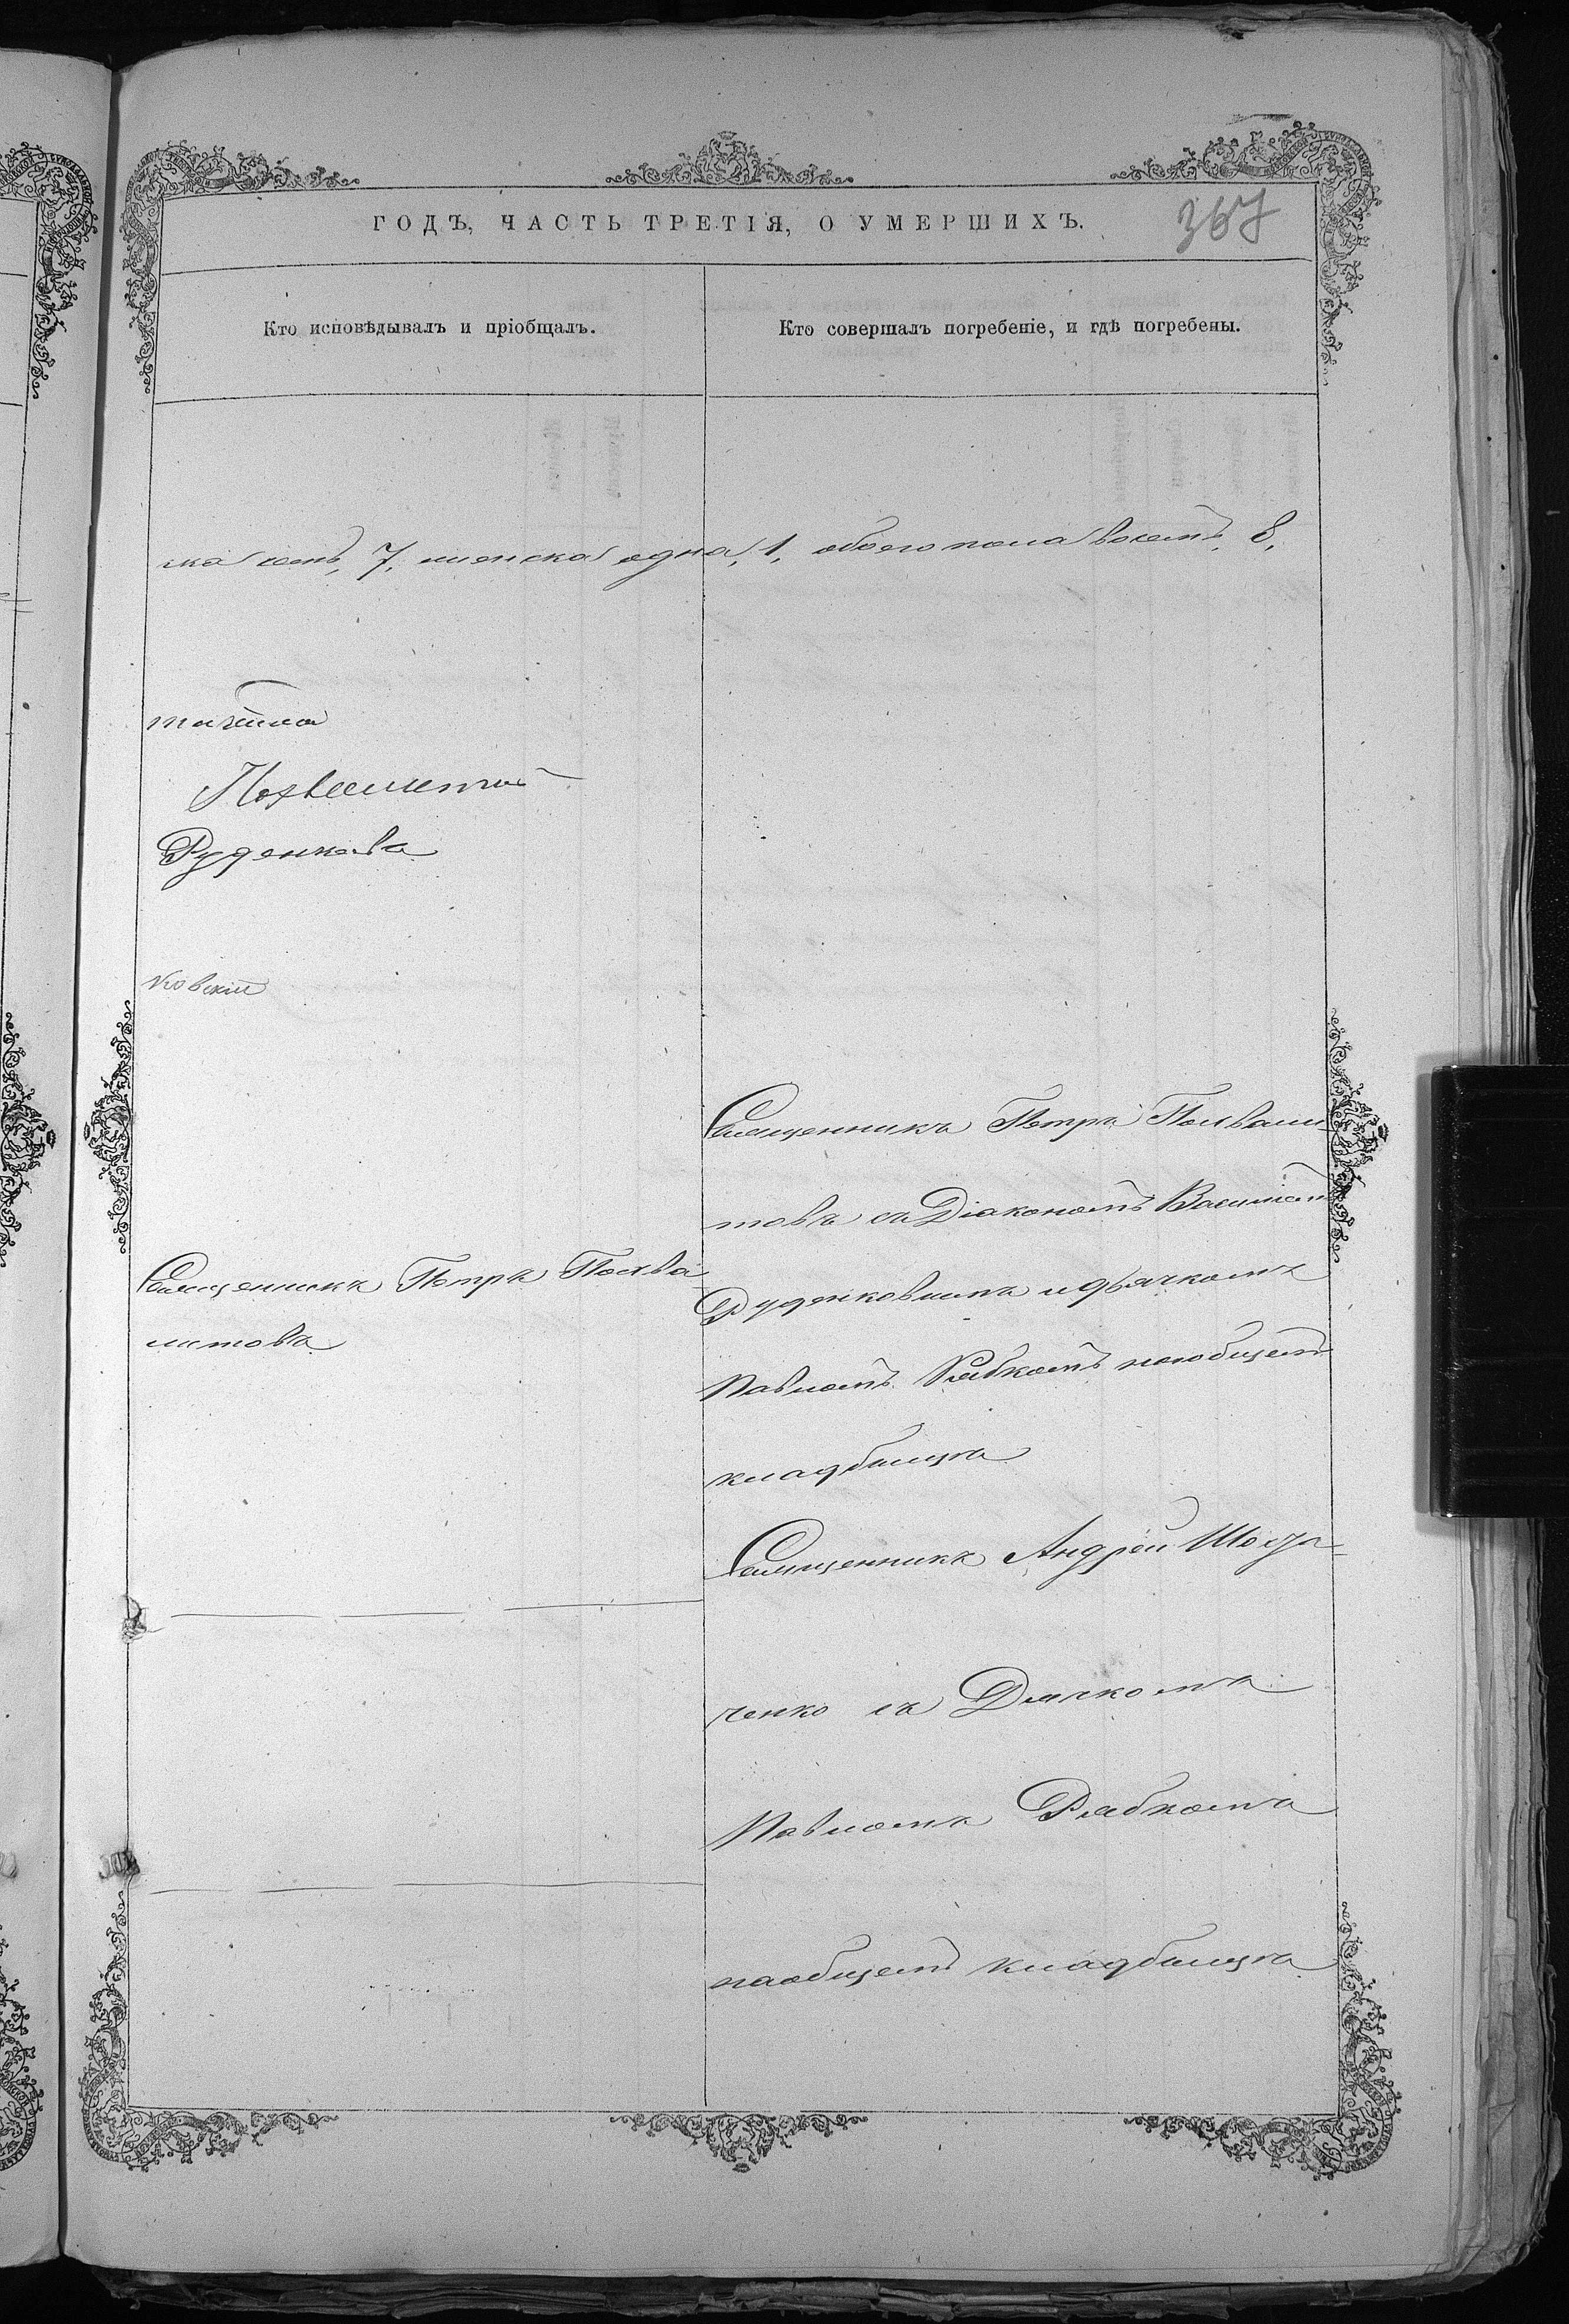 ГОДЪ, ЧАСТЬ ТРЕТІЯ, О УМЕРШИХЪ.
367
Кто исповѣдывалъ и пріобщалъ.
Кто совершалъ погребеніе, и гдѣ погребены.
ка семь, 7, женска одна, 1, обоего пола восемь, 8,
Руденкова
ковскій
Священникъ Петръ Похва
литовъ
Священникъ Петръ Похвали
товъ съ Діакономъ Василіемъ
Руденковымъ и дьячкомъ
Павломъ Рябкомъ на общемъ
кладбищѣ
Священникъ Андрей
ченко съ Дьячкомъ
Павломъ Рябкомъ
на общемъ кладбищѣ